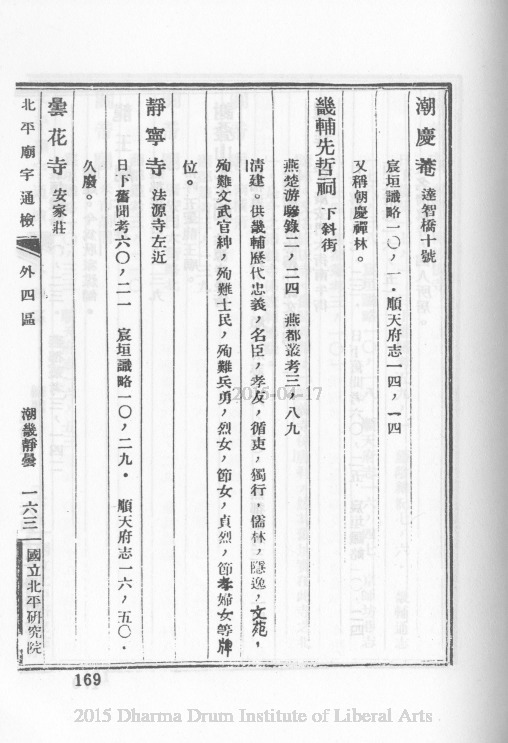 潮慶菴 達智橋十號
宸垣識略一〇，一．順天府志一四，一四
又稱朝慶禪林。
畿輔先哲祠 下斜街
燕楚游驂錄二，二四 燕都叢考三，八九
清建。供畿輔歷代忠義，名臣，孝友，循吏，獨行，儒林，隱逸，文苑，
殉難文武官紳，殉難士民，殉難兵勇，烈女，節女，貞烈，節孝婦女等牌
位。
靜寧寺 法源寺左近
日下舊聞考六〇，二一 宸垣識略一〇，二九． 順天府志一六，五〇．
久廢。
曇花寺 安家莊
北平廟宇通檢 外四區 潮畿靜曇 一六三 國立北平研究院
169
2015-04-17
2015 Dharma Drum Institute of Liberal Arts